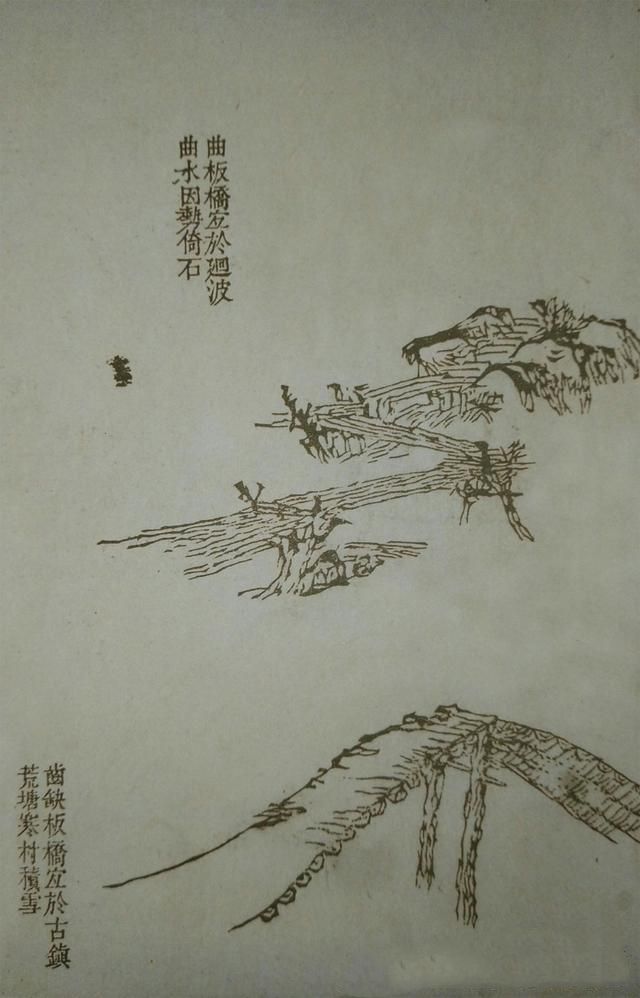 曲板橋宜於廻波
曲水因勢倚石
齒缺板橋宜於古鎮
荒塘寒村積雪